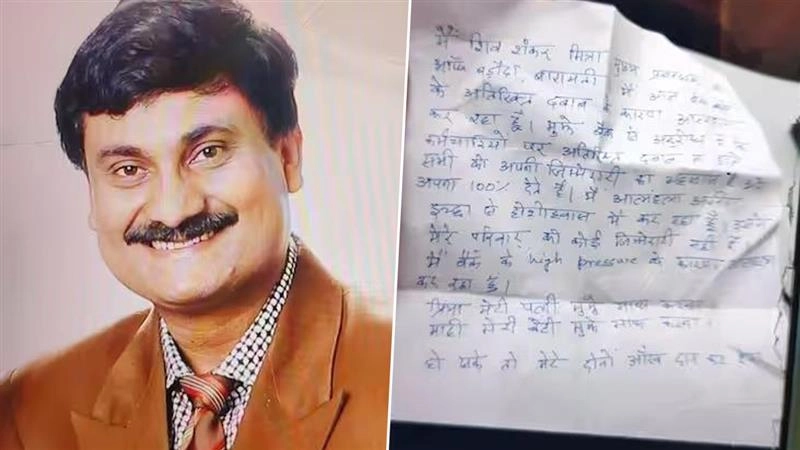 मैं शिव शंकर मित्रा मुख्य प्रबन्धक
ऑफ बड़ौदा, बारामती मैं आज बैंक
के अतिरिक्त दबाव के कारण आत्महत्या
कर रहा हूँ। मुझे बैंक से अनुरोध है कि
कर्मचारियों पर अतिरिक्त दबाव न
सभी को अपनी जिम्मेदारी का
अपना 100% देते हैं। मैं आत्महत्या अपनी
इच्छा से होशोहवास में कर रहा हूँ।
मेरे परिवार की कोई जिम्मेदारी नहीं है
मैं बैंक के high pressure के कारण
कर रहा हूँ।
प्रिया मेरी पत्नी मुझे माफ करना
माही मेरी बेटी मुझे माफ करना।
हो सके तो मेरे दोनों आँख दान कर